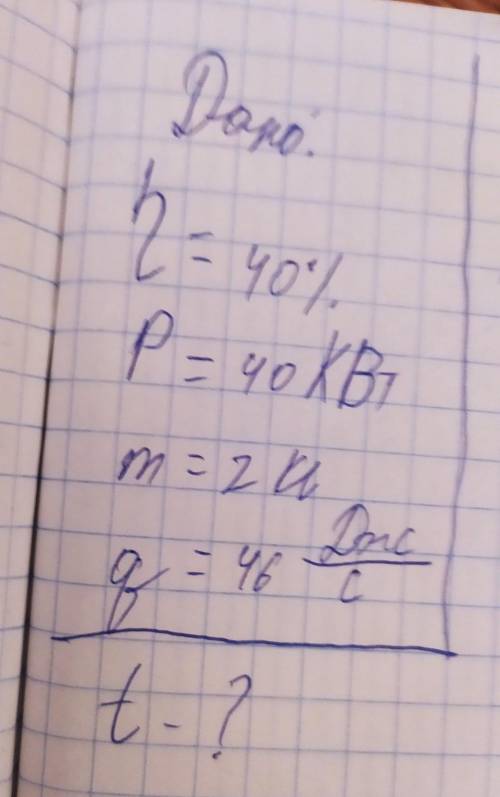 Дано:
η = 40%
P = 40 КВт
m = 2 кг
q = 46 Дж/с
t - ?